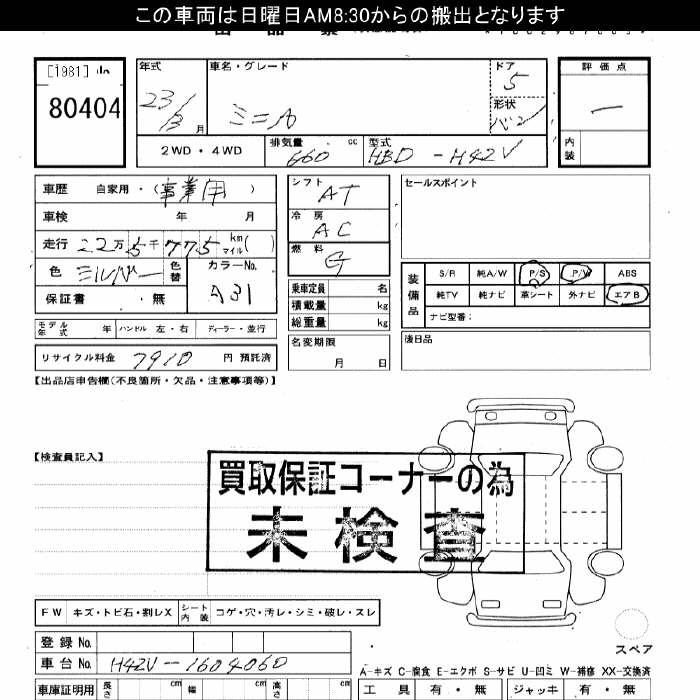 この車両は日曜日AM8:30からの搬出となります
[1981]
80404
年式 車名・グレード ドア 評価点
23/3月 ミニカ 5
形状 バン
内装
2WD・4WD 排気量 660 cc 型式 HBD-H42V
車歴 自家用・(事業用)
車検 年 月
走行 22万5千775 km マイル( )
色 シルバー 色替 カラーNo. A31
保証書 ・無
シフト AT
冷房 AC
燃料 G
乗車定員 名
積載量 kg
総重量 kg
セールスポイント
装備品 S/R 純A/W P/S P/W ABS
純TV 純ナビ 革シート 外ナビ エアB
ナビ型番:
モデル年式 年 ハンドル 左・右 ディーラー・並行
名変期限 月 日
後日品
リサイクル料金 7910 円 預託済
【出品店申告欄(不良箇所・欠品・注意事項等)】
【検査員記入】
買取保証コーナーの為
未検査
FW キズ・トビ石・割レX シート内装 コゲ・穴・汚レ・シミ・破レ・スレ
スペア
登録No.
車台No. H42V-1604060
A-キズ C-腐食 E-エクボ S-サビ U-凹ミ W-補修 XX-交換済
車庫証明用 長さ cm 幅 cm 高さ cm
工具 有・無 ジャッキ 有・無